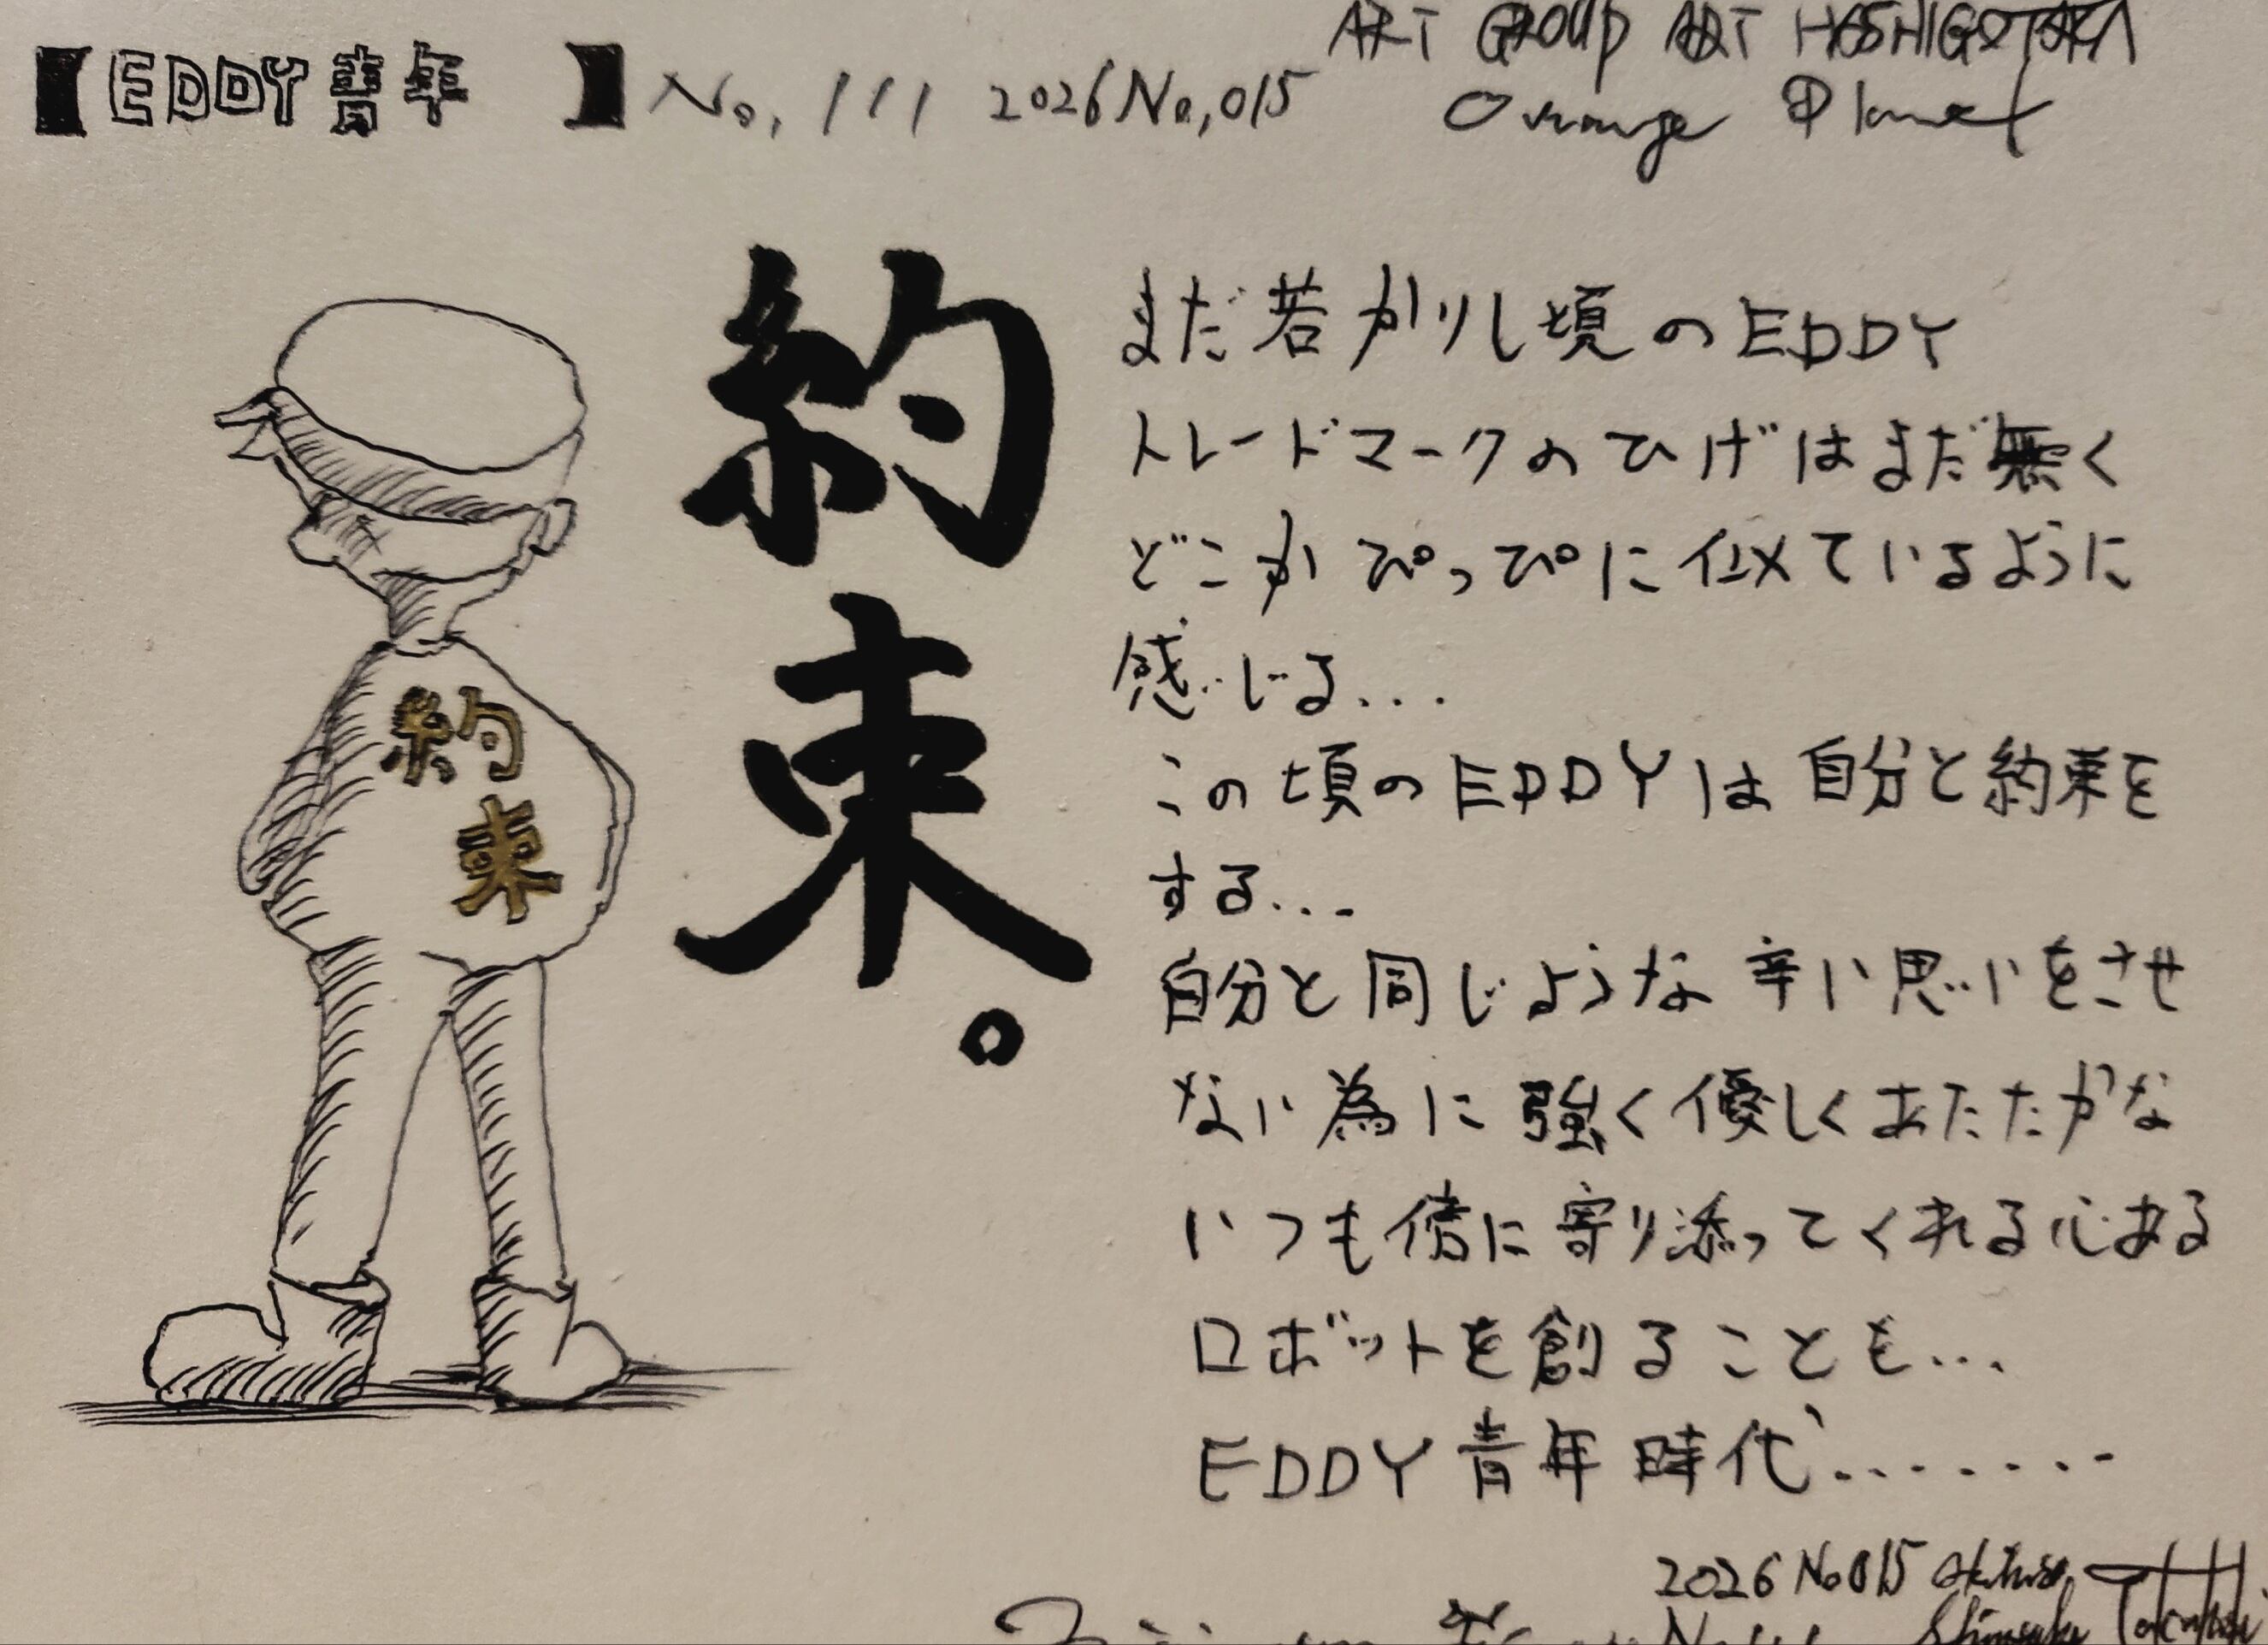 ART GROUP ART HOSHIGOTAKA
【EDDY青年 】No, 111 2026No,015
Orange Planet
約
束。
約
束
まだ若かりし頃のEDDY
トレードマークのひげはまだ無く
どこかぴっぴに似ているように
感じる...
この頃のEDDYは自分と約束を
する...
自分と同じような辛い思いをさせ
ない為に強く優しくあたたかな
いつも傍に寄り添ってくれる心ある
ロボットを創ることも...
EDDY青年時代........
2026 No015